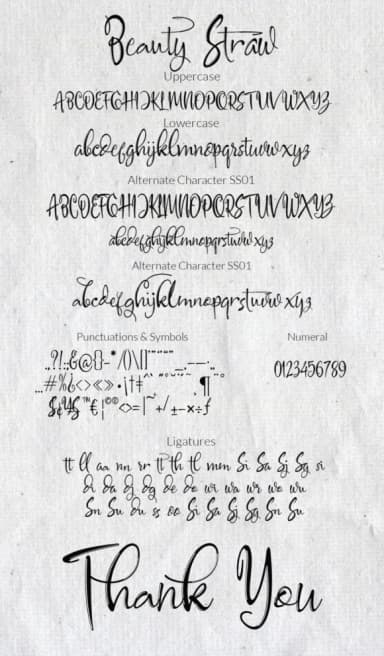 Beauty Straw
Uppercase
ABCDEFGHIJKLMNOPQRSTUVWXYZ
Lowercase
abcdefghijklmnopqrstuvwxyz
Alternate Character SS01
ABCDEFGHIJKLMNOPQRSTUVWXYZ
abcdefghijklmnopqrstuvwxyz
Alternate Character SS01
abcdefghijklmnopqrstuvwxyz
Punctuations & Symbols
Numeral
0123456789
Ligatures
tt ll aa nn rr tt th tl mm Si Sa Sj Sg si
Sn Su du ss oo Si Sa Sj Sg Sn Su
Thank You